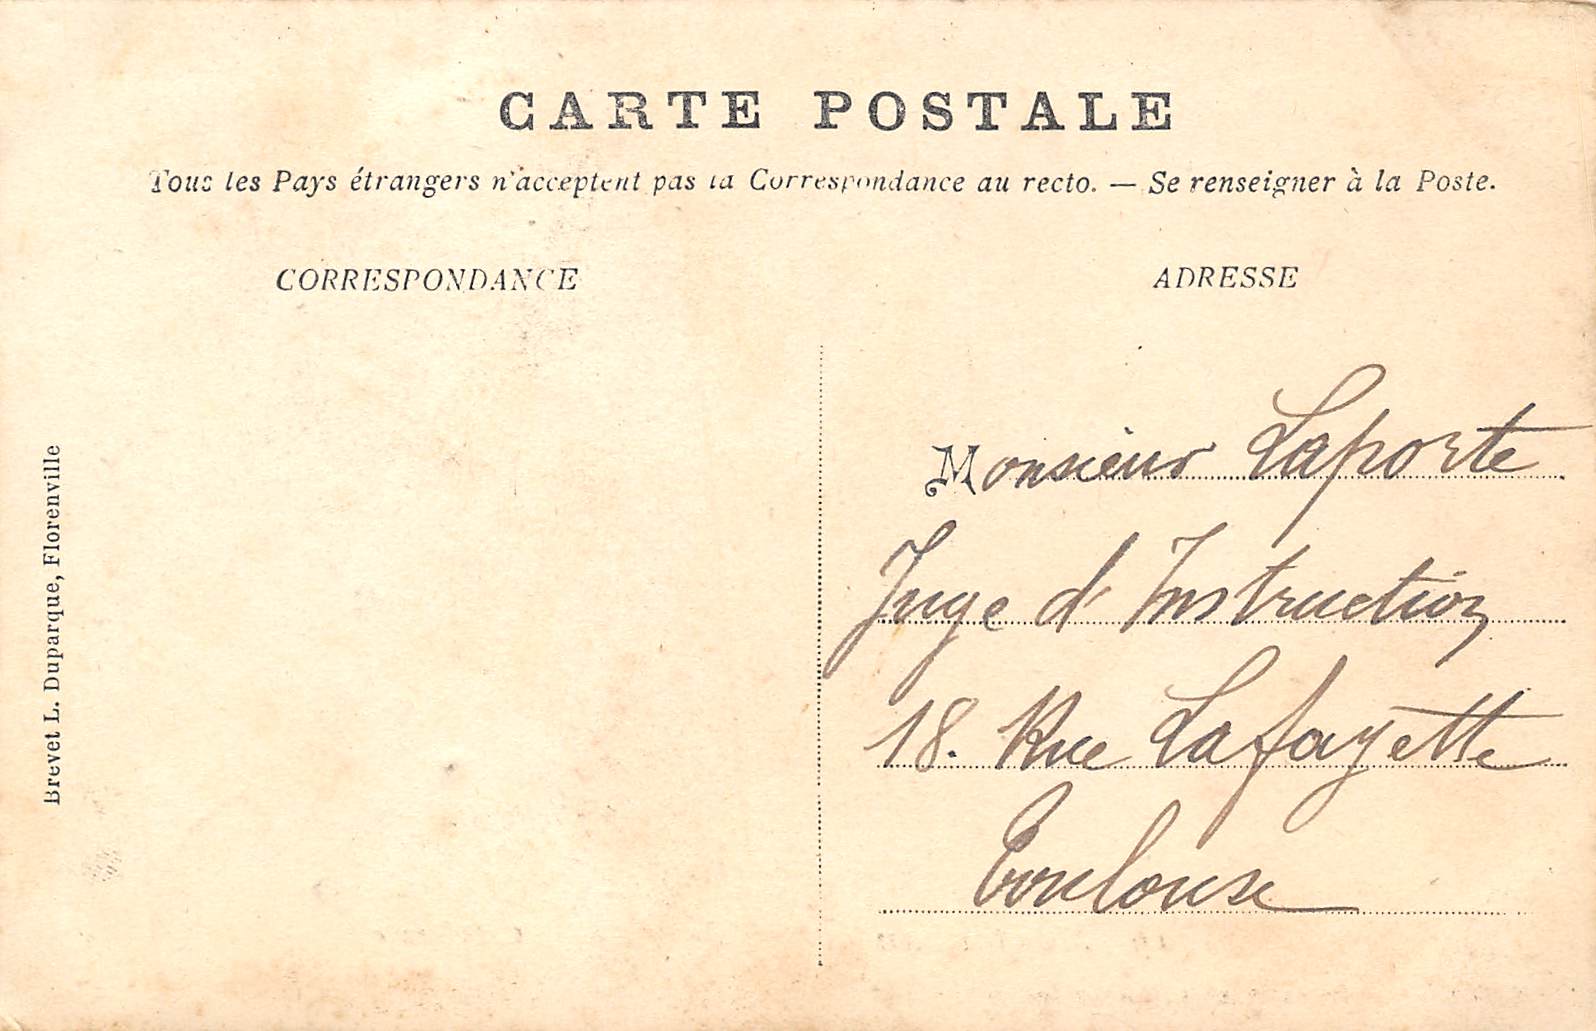 CARTE POSTALE
Tous les Pays étrangers n'acceptent pas la Correspondance au recto. — Se renseigner à la Poste.
CORRESPONDANCE
ADRESSE
Brevet L. Duparque, Florenville
Monsieur Laporte
Juge d'Instruction
18. Rue Lafayette
Toulouse